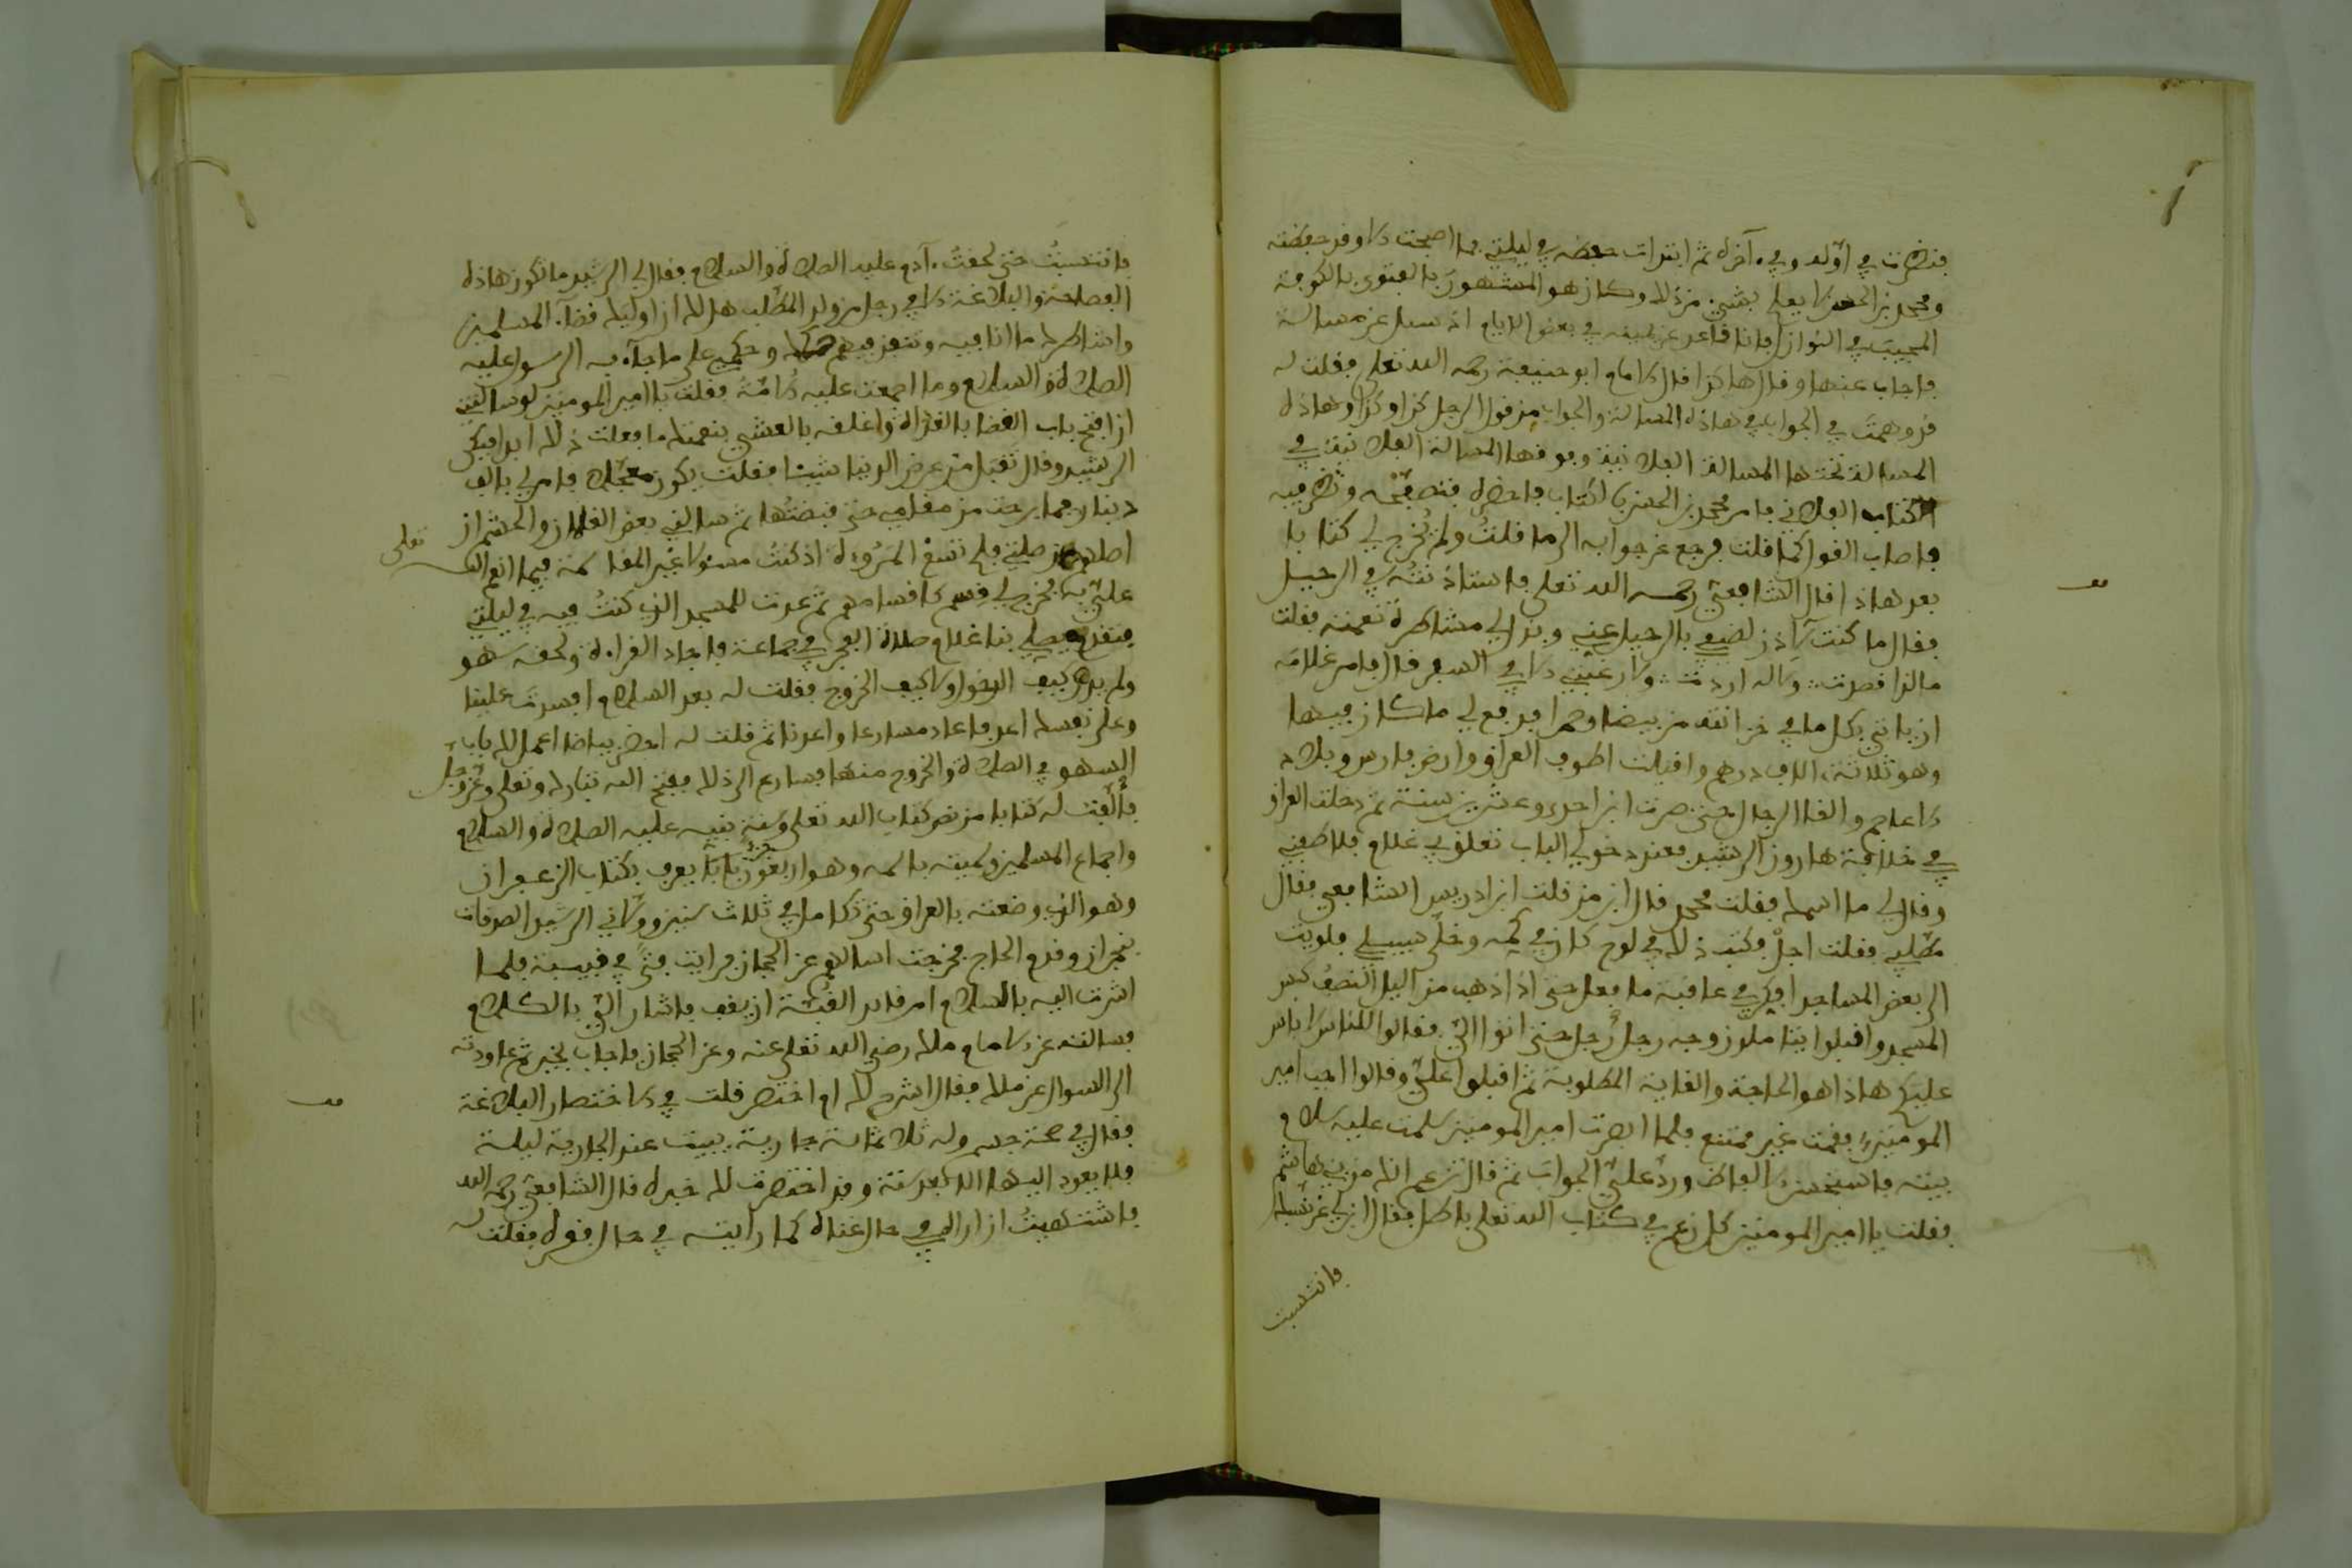 فنظرت في أوله وفي ءآخره ثم ابتدات بحفظه في ليلتي فما اصبحت الا وقد حفظته
ومحمد بن الحسن لا يعلم بشيء من ذلك وكان هو المشهورَ بالفتوى بالكوفة
المجيبَ في النوازل فانا قاعد عن يمينه في بعض الايام اذ سيل عن مسالة
فاجاب عنها وقال هاكذا قال الامام ابو حنيفة رحمه الله تعلى فقلت له
قد وهمتَ في الجواب في هاذه المسالة والجواب من قول الرجل كذا وكذا وهاذه
المسالة تحتها المسالة الفلانية وفوقها المسالة الفلانية في
الكتاب الفلاني فامر محمد بن الحسن بالكتاب فاحضره فتصفّحه ونظر فيه
فاصاب القول كما قلت فرجع عن جوابه الى ما قلتُ ولم يُخرج لي كتابا
بعد هاذا قال الشافعيّ رحمه الله تعلى فاستاذنتُه في الرحيل
فقال ما كنت لآذن لضيفي بالرحيل عني وبذل لي مشاطرة نعمته فقلت
ما لذا قصدت، ولا له اردت، ولا رغبتي الا في السفر قال فامر غلامَه
ان ياتي بكل ما في خزانته من بيضا وحمرا فدفع لي ما كان فيها
وهو ثلاثة ءالاف درهم واقبلت اطوف العراق وارض فارس وبلاد
الاعاجم والقا الرجال حتى صرت ابن احدى وعشرين سنة ثم دخلت العراق
في خلافة هارون الرشيد فعند دخولي الباب تعلق بي غلام فلاطفني
وقال لي ما اسمك فقلت محمد قال ابن من قلت ابن ادريس الشافعي فقال
مطّلبي فقلت اجلْ فكتب ذلك في لوح كان في كمه وخلّى سبيلي فاويت
الى بعض المساجد افكر في عاقبة ما فعل حتى اذا ذهب من اليل النصفُ كبس
المسجد واقبلوا يتاملون وجه رجلٍ رجل حتى اتوا اليّ فقالوا للناس لا باس
عليكم هاذا هو الحاجة والغاية المطلوبة ثم اقبلوا عليّ وقالوا اجب امير
المومنين فقمت غير ممتنع فلما ابصرت امير المومنين سلمت عليه سلاما
بينه فاستحسن الفاظ وردّ عليّ الجوابَ ثم قال تزعم انك من بني هاشم
فقلت يا امير المومنين كل زعم في كتاب الله تعلى باطل فقال ابن لي عن نسبك
فانتسبت
فانتسبتُ حتى لحقتُ ءآدم عليه الصلاة والسلام فقال لي الرشيد ما تكون هاذه
الفصاحة والبلاغة الا في رجل من ولد المطّلب هل لك ان اوليك قضآء المسلمين
واشاطرك ما انا فيه وتنفذ فيهم حكمك وحكمي على ما جآء به الرسول عليه
الصلاة والسلام وما اجمعت عليه الامّة فقلت يا امير المومنين لو سالتني
ان افتح باب القضا بالغداة واغلقه بالعشي بنعمتك ما فعلت ذلك ابدا فبكى
الرشيد وقال تقبَل من عرض الدنيا شيئا فقلت يكون معجّلا فامر لي بالف
دينار فما برحت من مقامي حتى قبضتُها ثم سالني بعض الغلمان والحشم ان
اصلهم من صلتي فلم تسَع المرُوءة اذ كنتُ مسئولا غير المقاسمة فيما انعم الله تعلى
عليّ به فخرج لي قسم كاقسامهم ثم عدت للمسجد الذي كنتُ فيه في ليلتي
فتقدم يصلي بنا غلام صلاة الفجر في جماعة فاجاد القراءة ولحقه سهو
ولم يدر كيف الدخول ولا كيف الخروج فقلت له بعد السلام افسدتَ علينا
وعلى نفسك اعد فاعاد مسارعا واعدنا ثم قلت له احضر بياضا اعمل لك باب
السهو في الصلاة والخروج منها فسارع الى ذلك ففتح الله تبارك وتعلى وعزّ وجلّ
فألّفت له كتابا من نص كتاب الله تعلى وسنة نبيه عليه الصلاة والسلام
واجماع المسلمين وسميته باسمه وهو اربعون جزءًا يعرف بكتاب الزعفران
وهو الذي وضعته بالعراق حتى تكامل في ثلاث سنين وولاني الرشيد الصدقات
بنجران وقدم الحاج فخرجت اسالهم عن الحجاز فرايت فتًى في قبة فلما
اشرت اليه بالسلام امر قايد القُبّة ان يقف واشار اليّ بالكلام
فسالته عن الامام مالك رضي الله تعلى عنه وعن الحجاز فاجاب بخير ثم عاودته
الى السوال عن مالك فقال اشرح لك ام اختصر قلت في الاختصار البلاغة
فقال في صحة جسم وله ثلاثمائة جارية يبيت عند الجارية ليلة
فلا يعود اليها الا بعد سنة وقد اختصرت لك خبره قال الشافعيّ رحمه الله
فاشتهيتُ ان اراه في حال غناه كما رايته في حال فقره فقلت له